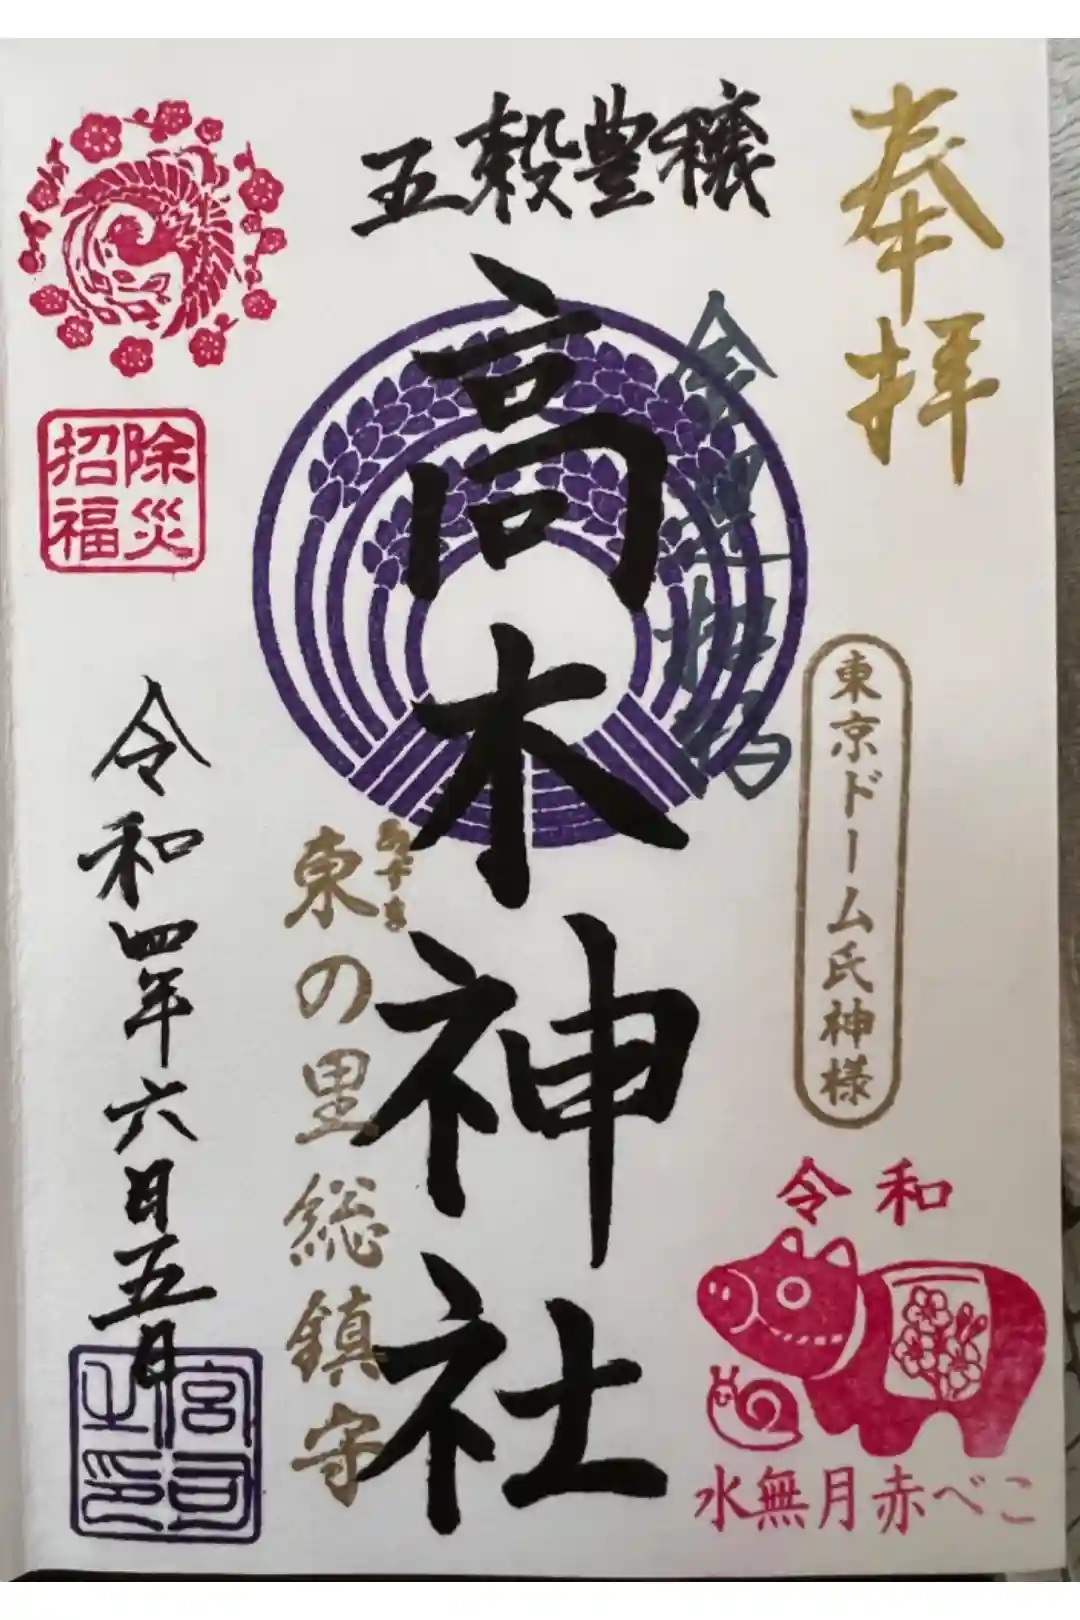 奉拝
五穀豊穣
高木神社
金運招福
東京ドーム氏神様
令和
水無月赤べこ
東の里総鎮守
除災
招福
令和四年六月五日
宮司
之印